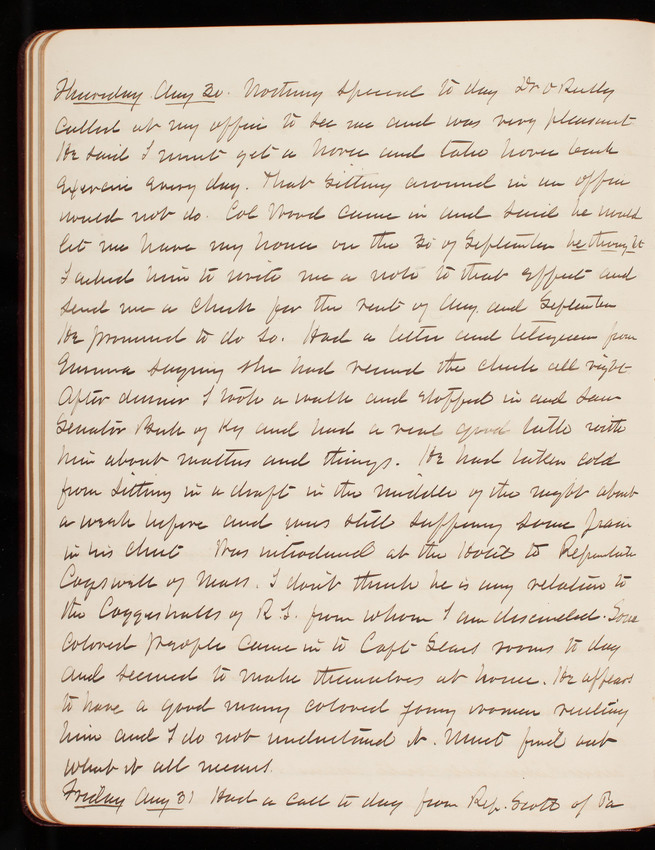 Thursday Aug 30. Nothing special to day Dr O'Reilly
called at my office to see me and was very pleasant
He said I must get a horse and take horse back
exercise every day. That sitting around in an office
would not do. Col Wood came in and said he would
let me have my house on the 30 of September he thought
I asked him to write me a note to that effect and
send me a check for the rent of Aug. and September
He promised to do so. Had a letter and telegram from
Emma saying she had received the check all right
After dinner I took a walk and stopped in and saw
Senator Beck of Ky and had a real good talk with
him about matters and things. He had taken cold
from sitting in a draft in the middle of the night about
a week before and was still suffering some pain
in his chest Was introduced at the Hotel to
Cogswell of Mass. I don't think he is any relation to
the Coggeshalls of R.I. from whom I am descended. Some
colored people came in to Capt Sears rooms to day
and seemed to make themselves at home. He appears
to have a good many colored young women visiting
him and I do not understand it. Must find out
what it all means.
Friday Aug 31 Had a call to day from Rep. Scott of Pa